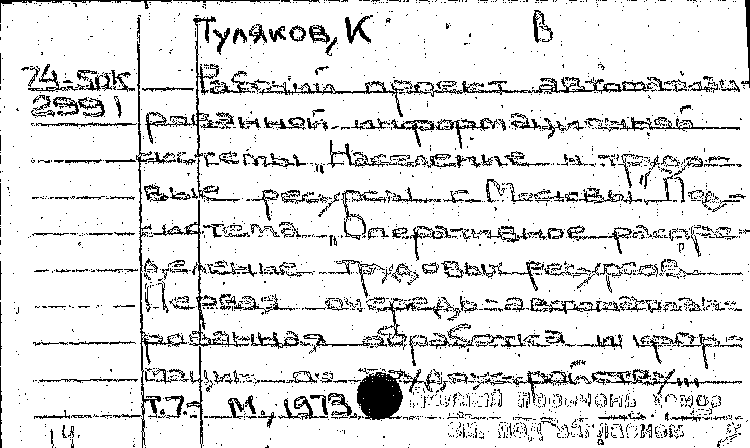 Туляков, К В
74-5рк Рабочий проект автоматизи-
2991 рованной информационной
системы „Население и трудо-
вые ресурсы г. Москвы" Под-
система „Оперативное распре-
деление трудовых ресурсов.
Первая очередь-автоматизи-
рованная обработка инфор-
мации по трудоустройству...
Т.7.- М., 1973.
14